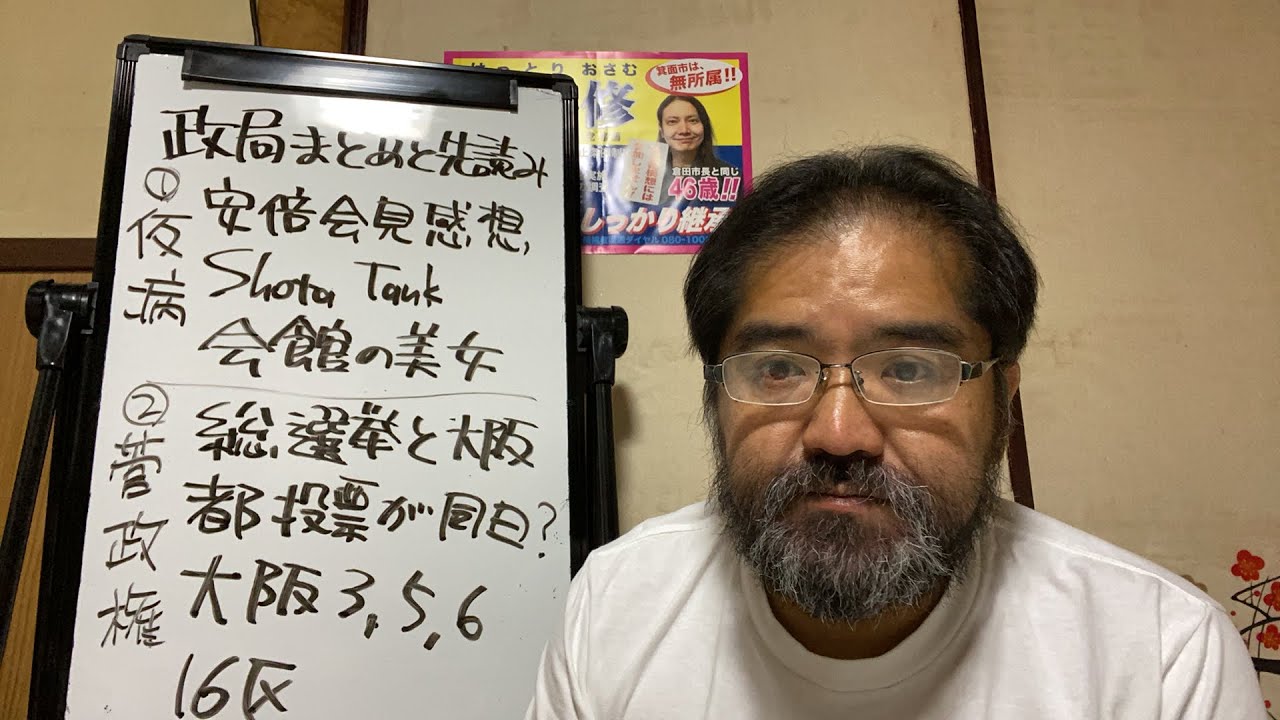 政局まとめと先読み
①仮病
安倍会見感想,
Shota Tank
会館の美女
②菅政権
総選挙と大阪
都投票が同日?
大阪3,5,6
16区
はっとり おさむ
修
箕面市は、
無所属!!
倉田市長と同じ
46歳!!
しっかり継承